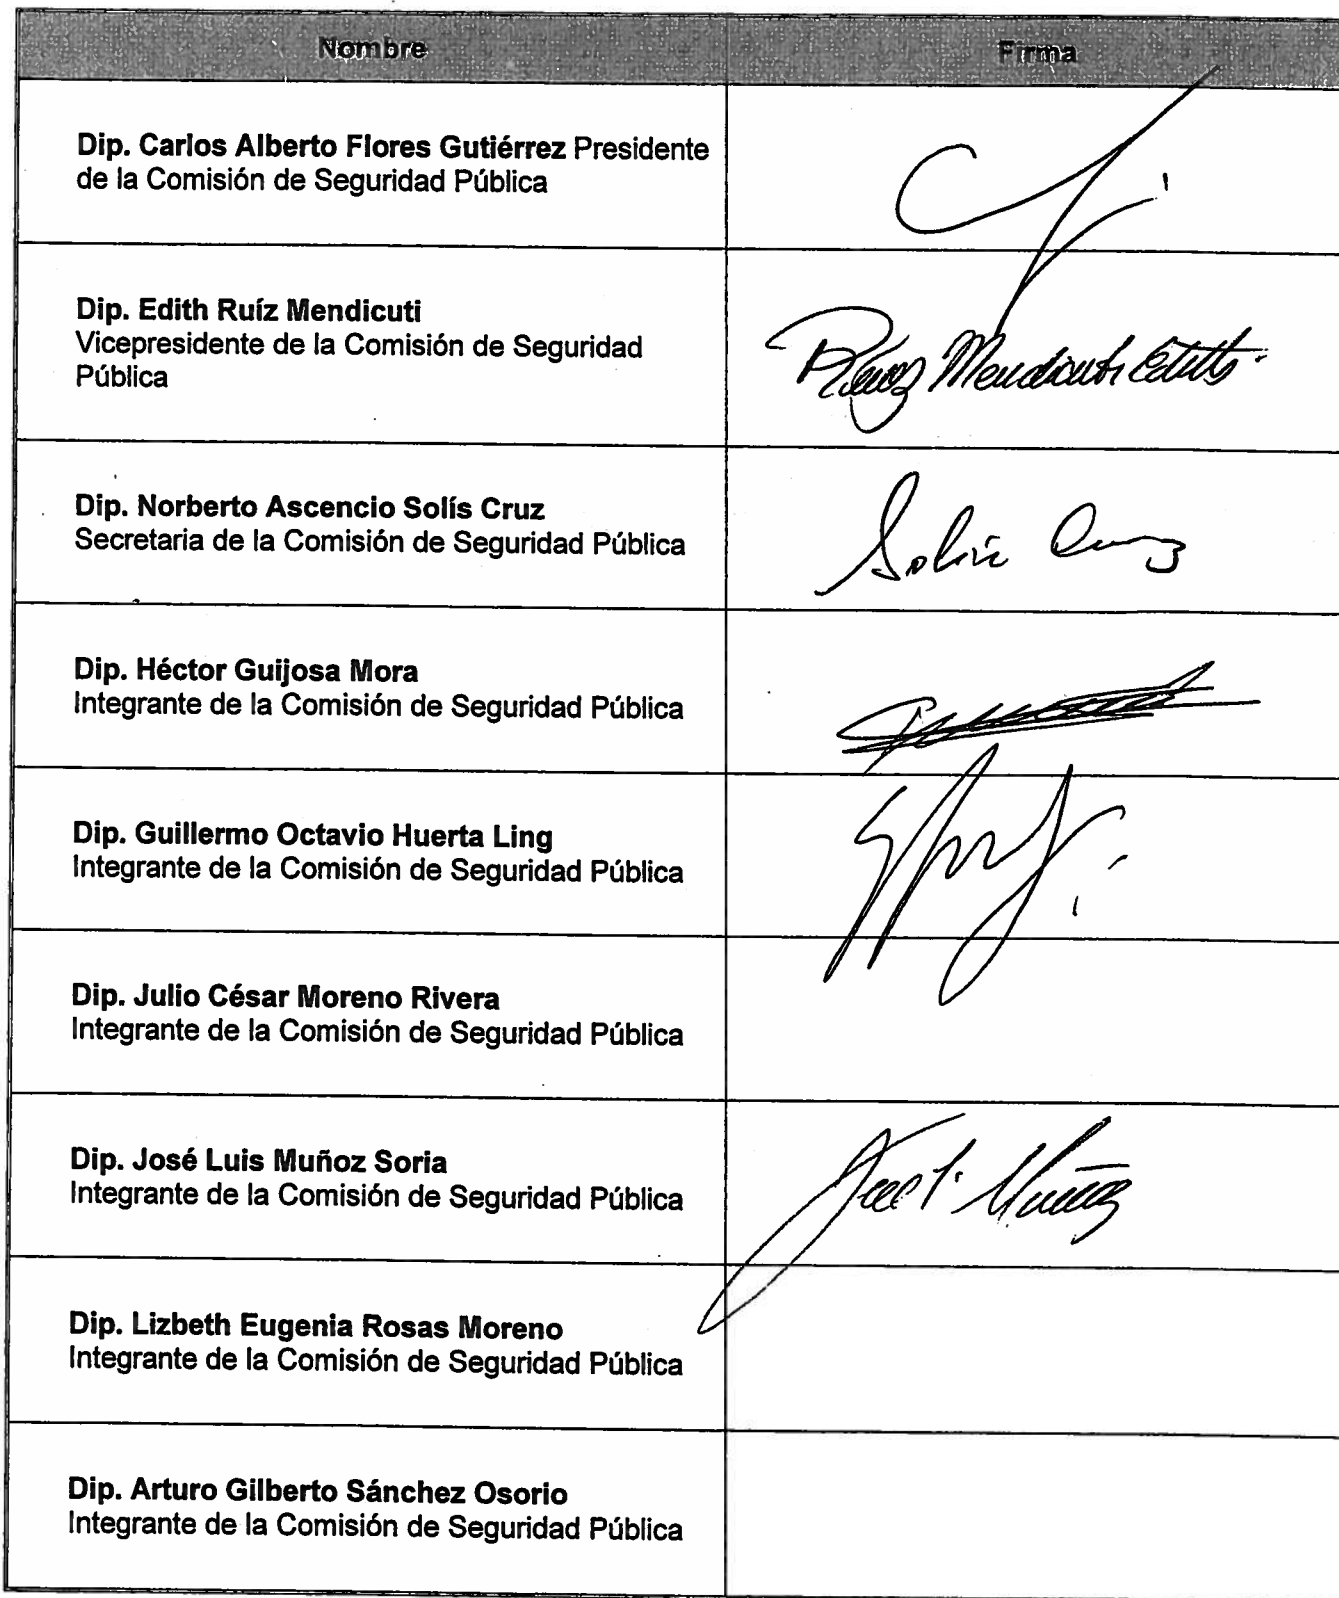 Nombre
Firma
Dip. Carlos Alberto Flores Gutiérrez Presidente
de la Comisión de Seguridad Pública
Dip. Edith Ruíz Mendicuti
Vicepresidente de la Comisión de Seguridad
Pública
Ruíz Mendicuti Edith
Dip. Norberto Ascencio Solís Cruz
Secretaria de la Comisión de Seguridad Pública
Solis Cruz
Dip. Héctor Guijosa Mora
Integrante de la Comisión de Seguridad Pública
Dip. Guillermo Octavio Huerta Ling
Integrante de la Comisión de Seguridad Pública
Dip. Julio César Moreno Rivera
Integrante de la Comisión de Seguridad Pública
Dip. José Luis Muñoz Soria
Integrante de la Comisión de Seguridad Pública
José L. Muñoz
Dip. Lizbeth Eugenia Rosas Moreno
Integrante de la Comisión de Seguridad Pública
Dip. Arturo Gilberto Sánchez Osorio
Integrante de la Comisión de Seguridad Pública